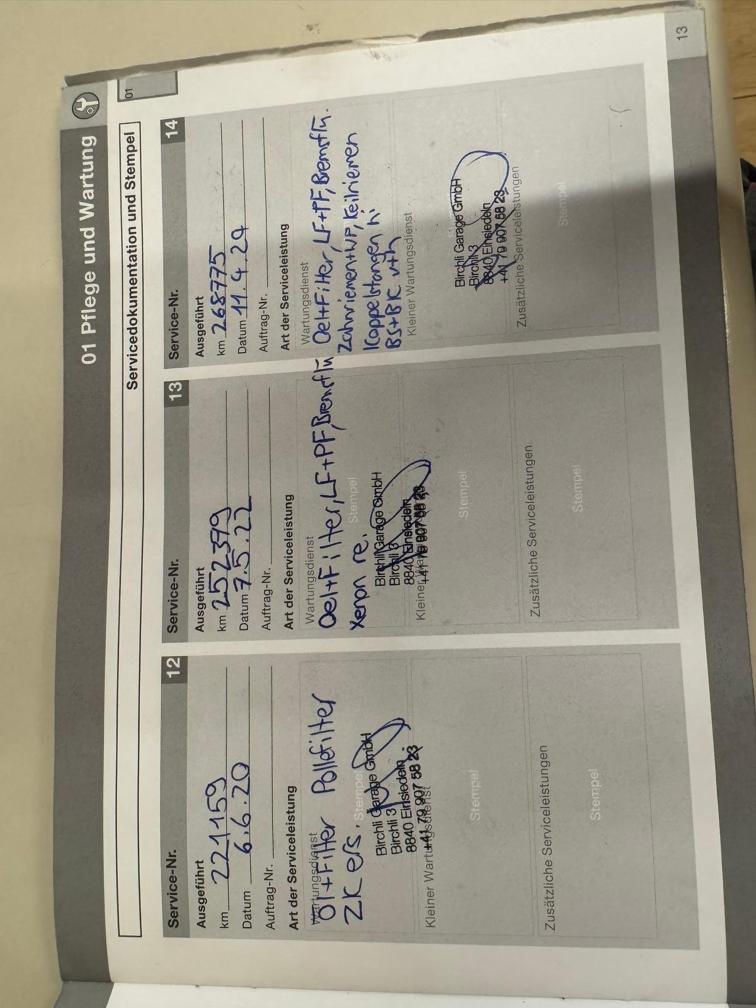 01 Pflege und Wartung
01
Servicedokumentation und Stempel
Service-Nr. 12
Ausgeführt
km 221159
Datum 6.6.20
Auftrag-Nr.
Art der Serviceleistung
Wartungsdienst
Öl+Filter Pollefilter
ZK ers.
Stempel
Birchli Garage GmbH
Birchli 3
8840 Einsiedeln
+41 79 907 58 23
Kleiner Wartungsdienst
Stempel
Zusätzliche Serviceleistungen
Stempel
Service-Nr. 13
Ausgeführt
km 252379
Datum 7.5.22
Auftrag-Nr.
Art der Serviceleistung
Wartungsdienst
Oel+Filter, LF+PF, Bremsflü
Xenon re.
Stempel
Birchli Garage GmbH
Birchli 3
8840 Einsiedeln
+41 79 907 58 23
Kleiner Wartungsdienst
Stempel
Zusätzliche Serviceleistungen
Stempel
Service-Nr. 14
Ausgeführt
km 268775
Datum 11.4.24
Auftrag-Nr.
Art der Serviceleistung
Wartungsdienst
Oel+Filter, LF+PF, Bremsflü.
Zahnriemen+WP, Keilriemen
Koppelstangen hi
BS+BK v+h
Kleiner Wartungsdienst
Birchli Garage GmbH
Birchli 3
8840 Einsiedeln
+41 79 907 58 23
Zusätzliche Serviceleistungen
Stempel
13